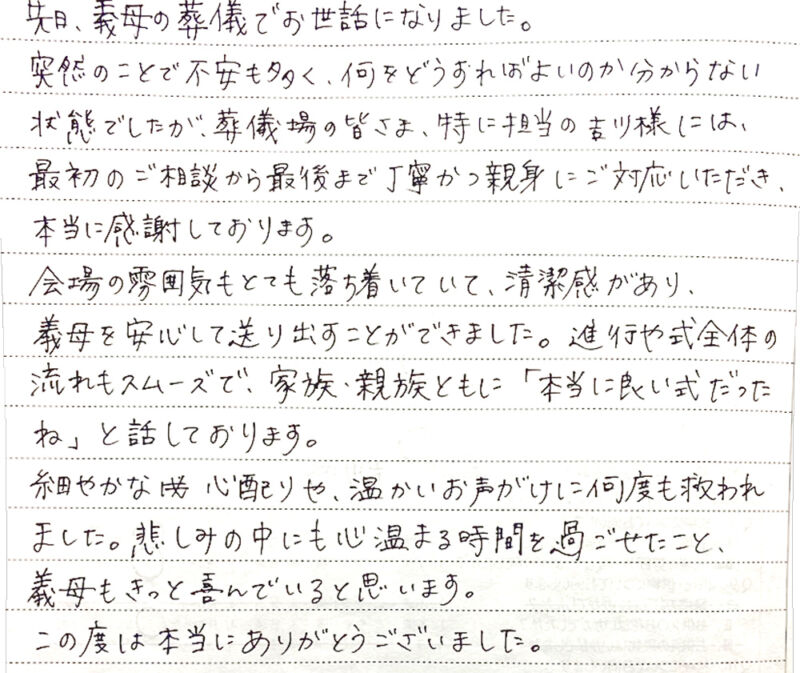 先日、義母の葬儀でお世話になりました。
突然のことで不安も多く、何をどうすればよいのか分からない
状態でしたが、葬儀場の皆さま、特に担当の吉川様には、
最初のご相談から最後まで丁寧かつ親身にご対応いただき、
本当に感謝しております。
会場の雰囲気もとても落ち着いていて、清潔感があり、
義母を安心して送り出すことができました。進行や式全体の
流れもスムーズで、家族・親族ともに「本当に良い式だった
ね」と話しております。
細やかな 心配りや、温かいお声がけに何度も救われ
ました。悲しみの中にも心温まる時間を過ごせたこと、
義母もきっと喜んでいると思います。
この度は本当にありがとうございました。